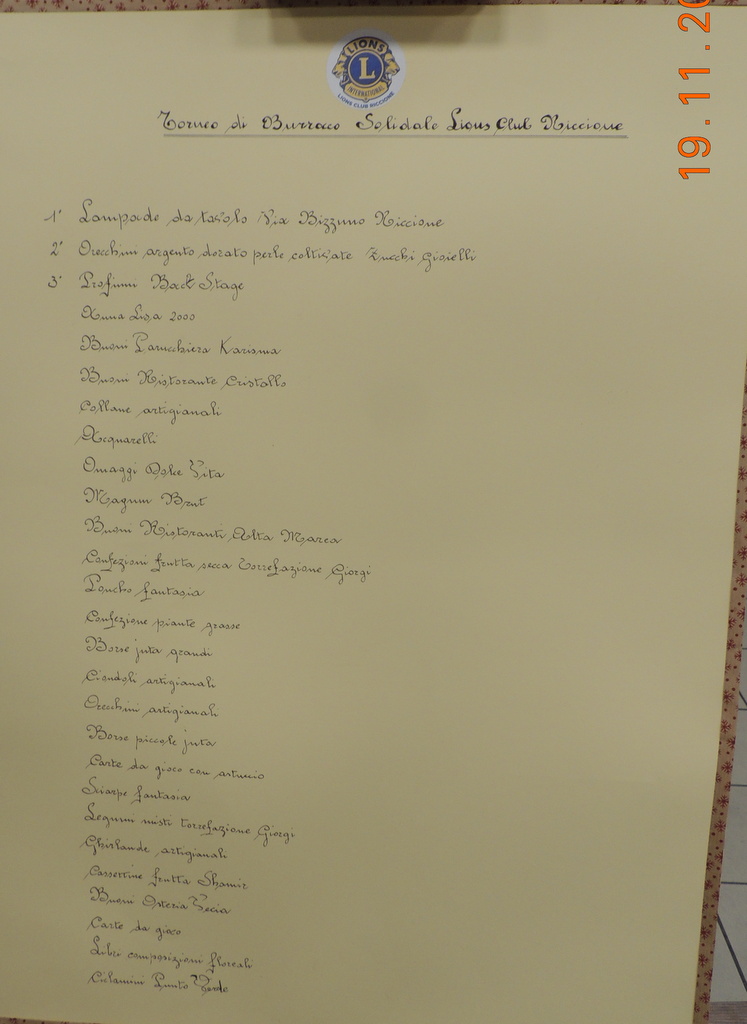 LIONS
L
INTERNATIONAL
LIONS CLUB RICCIONE
19.11.20
Torneo di Burraco Solidale Lions Club Riccione
1° Lampade da tavolo Via Bizzuno Riccione
2° Orecchini argento dorato perle coltivate Zucchi Gioielli
3° Profumi Back Stage
Anna Lisa 2000
Buoni Parucchiera Karisma
Buoni Ristorante Cristallo
Collane artigianali
Acquarelli
Omaggi Dolce Vita
Magnum Brut
Buoni Ristoranti Alta Marea
Confezioni frutta secca Torrefazione Giorgi
Poncho fantasia
Confezione piante grasse
Borse juta grandi
Ciondoli artigianali
Orecchini artigianali
Borse piccole juta
Carte da gioco con astuccio
Sciarpe fantasia
Legumi misti torrefazione Giorgi
Ghirlande artigianali
Cassettine frutta Shamir
Buoni Osteria Vecia
Carte da gioco
Libri composizioni floreali
Ciclamini Punto Verde